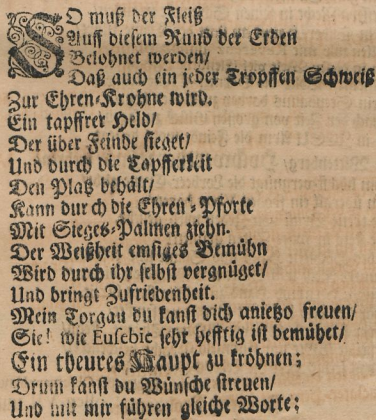 SO muß der Fleiß
Auff diesem Rund der Erden
Belohnet werden/
Daß auch ein jeder Tropffen Schweiß
Zur Ehren-Krohne wird.
Ein tapffrer Held/
Der über Feinde sieget/
Und durch die Tapfferkeit
Den Platz behält/
Kann durch die Ehren-Pforte
Mit Sieges-Palmen ziehn.
Der Weißheit emsiges Bemühn
Wird durch ihr selbst vergnüget/
Und bringt Zufriedenheit.
Mein Torgau du kanst dich anietzo freuen/
Sie! wie Eusebie sehr hefftig ist bemühet/
Ein theures Haupt zu kröhnen;
Drum kanst du Wünsche streuen/
Und mit mir führen gleiche Worte;